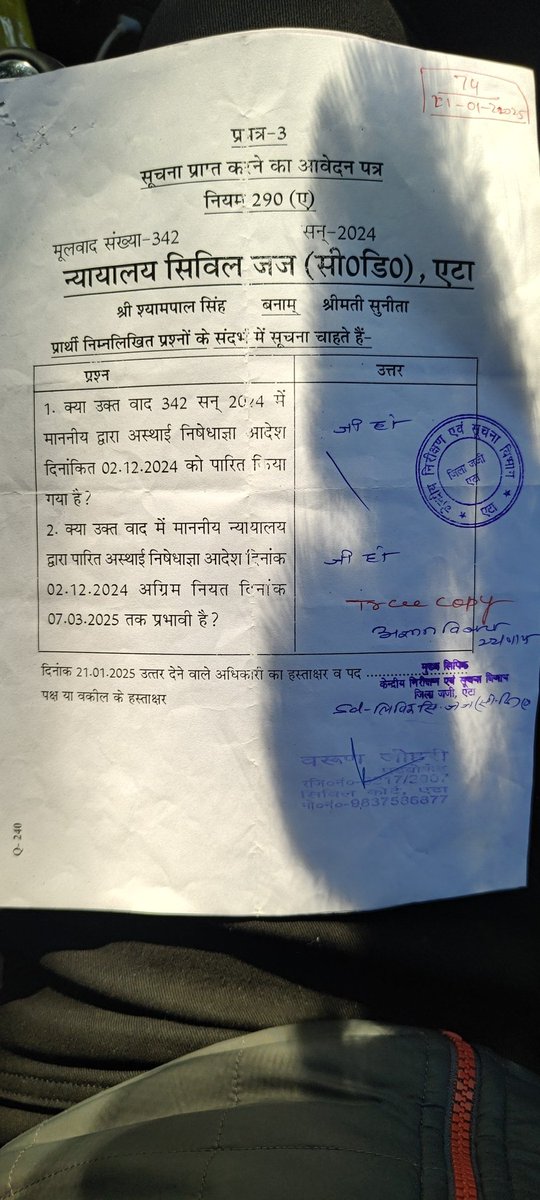 74
21-01-2025
प्रपत्र-3
सूचना प्राप्त करने का आवेदन पत्र
नियम 290 (ए)
मूलवाद संख्या-342 सन्-2024
न्यायालय सिविल जज (सी0डि0), एटा
श्री श्यामपाल सिंह बनाम् श्रीमती सुनीता
प्रार्थी निम्नलिखित प्रश्नों के संदर्भ में सूचना चाहते हैं-
प्रश्न उत्तर
1. क्या उक्त वाद 342 सन् 2024 में
माननीय द्वारा अस्थाई निषेधाज्ञा आदेश
दिनांकित 02.12.2024 को पारित किया
गया है ?
जी हाँ
2. क्या उक्त वाद में माननीय न्यायालय
द्वारा पारित अस्थाई निषेधाज्ञा आदेश दिनांक
02.12.2024 अग्रिम नियत दिनांक
07.03.2025 तक प्रभावी है ?
जी हाँ
केन्द्रीय निरीक्षण एवं सूचना विभाग
जिला जजी
एटा
एटा
True copy
दिनांक 21.01.2025 उत्तर देने वाले अधिकारी का हस्ताक्षर व पद
मुख्य लिपिक
केन्द्रीय निरीक्षण एवं सूचना विभाग
जिला जजी, एटा
पक्ष या वकील के हस्ताक्षर
सिविल कोर्ट, एटा
मो0नं0-9837586877
Q- 240